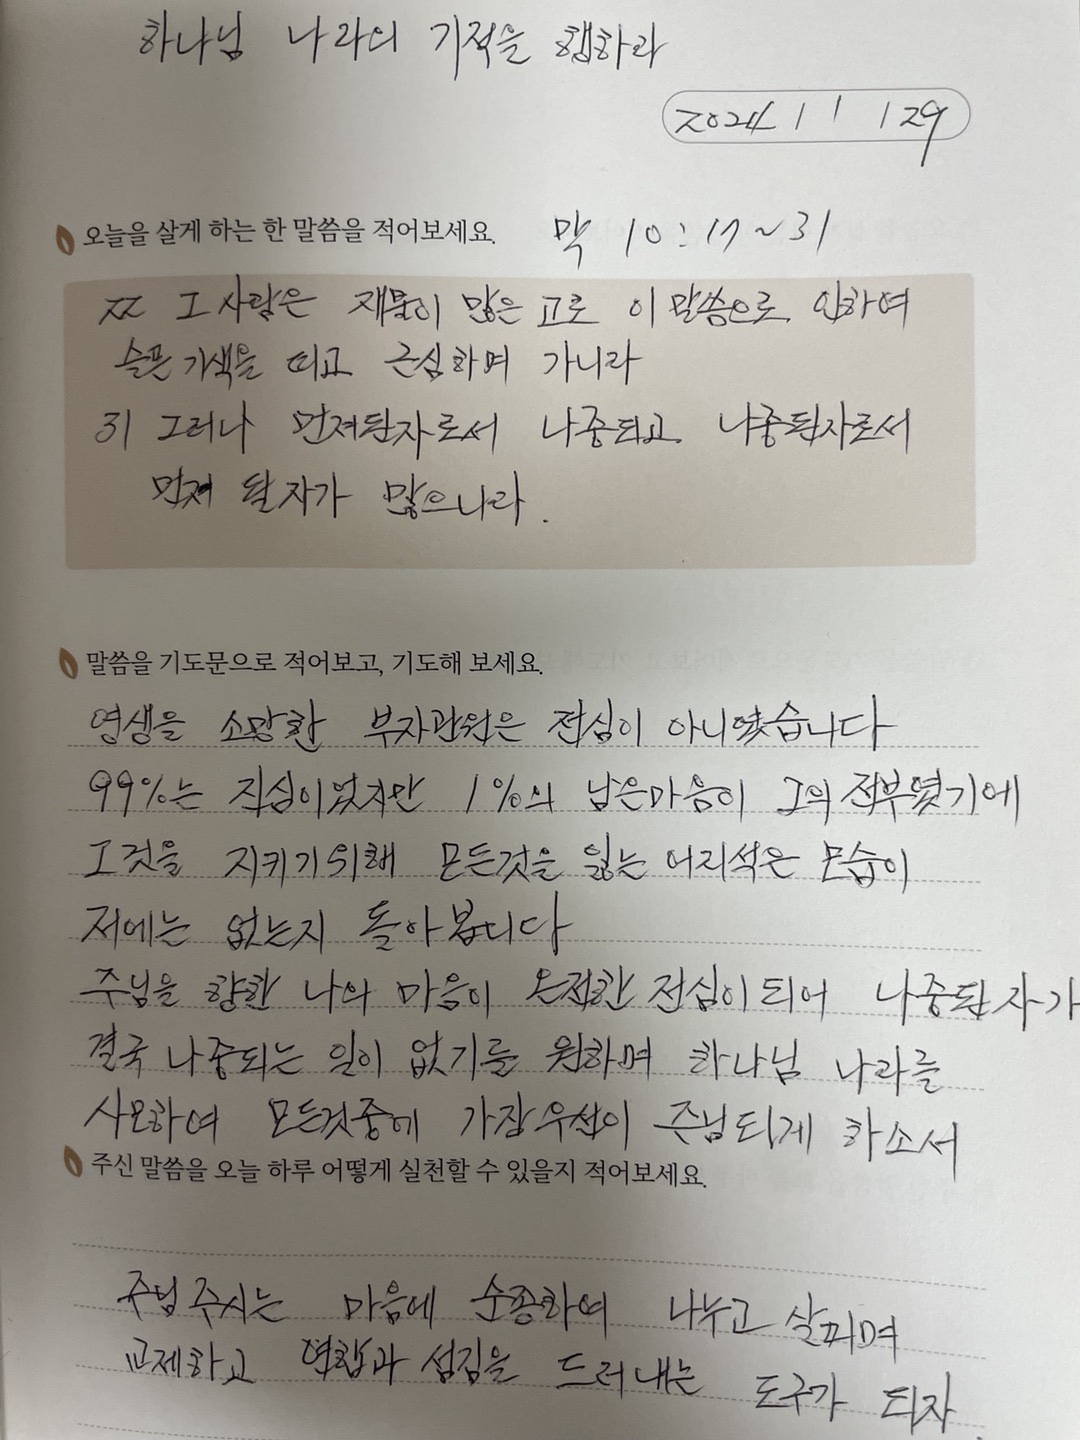 하나님 나라의 기적을 행하라
2024 / 1 / 29
오늘을 살게 하는 한 말씀을 적어보세요. 막 10:17~31
22 그 사람은 재물이 많은 고로 이 말씀으로 인하여
슬픈 기색을 띠고 근심하며 가니라
31 그러나 먼저된자로서 나중되고 나중된자로서
먼저 될 자가 많으니라.
말씀을 기도문으로 적어보고, 기도해 보세요.
영생을 소망한 부자관원은 전심이 아니였습니다
99%는 진심이었지만 1%의 남은마음이 그의 전부였기에
그것을 지키기위해 모든것을 잃는 어리석은 모습이
저에는 없는지 돌아봅니다
주님을 향한 나의 마음이 온전한 전심이 되어 나중된 자가
결국 나중되는 일이 없기를 원하며 하나님 나라를
사모하여 모든것중에 가장우선이 주님되게 하소서
주신 말씀을 오늘 하루 어떻게 실천할 수 있을지 적어보세요.
주님주시는 마음에 순종하여 나누고 살피며
교제하고 연합과 섬김을 드러내는 도구가 되자.